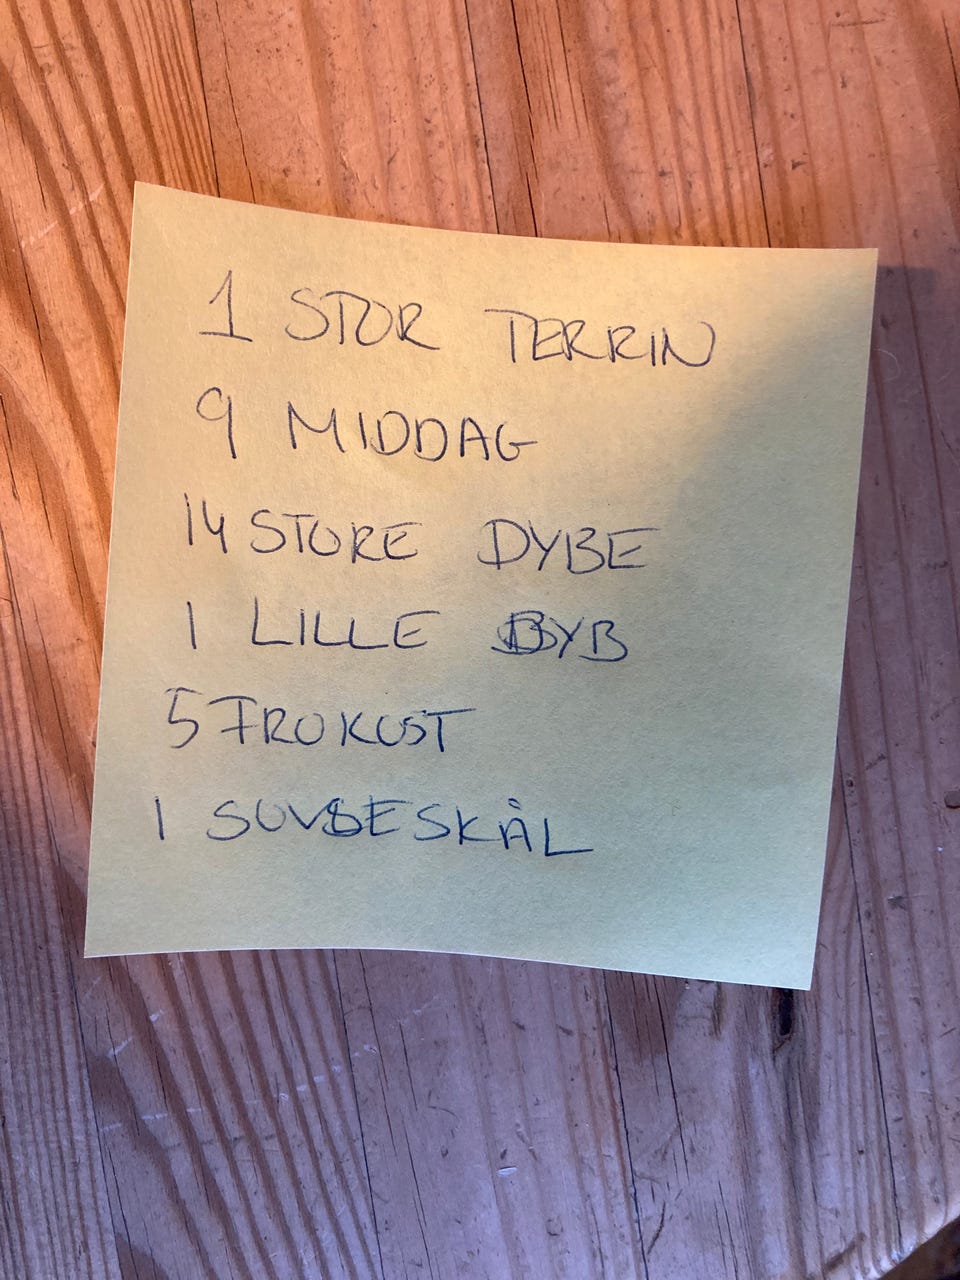 1 STOR TERRIN
9 MIDDAG
14 STORE DYBE
1 LILLE DYB
5 FROKOST
1 SOVSESKÅL